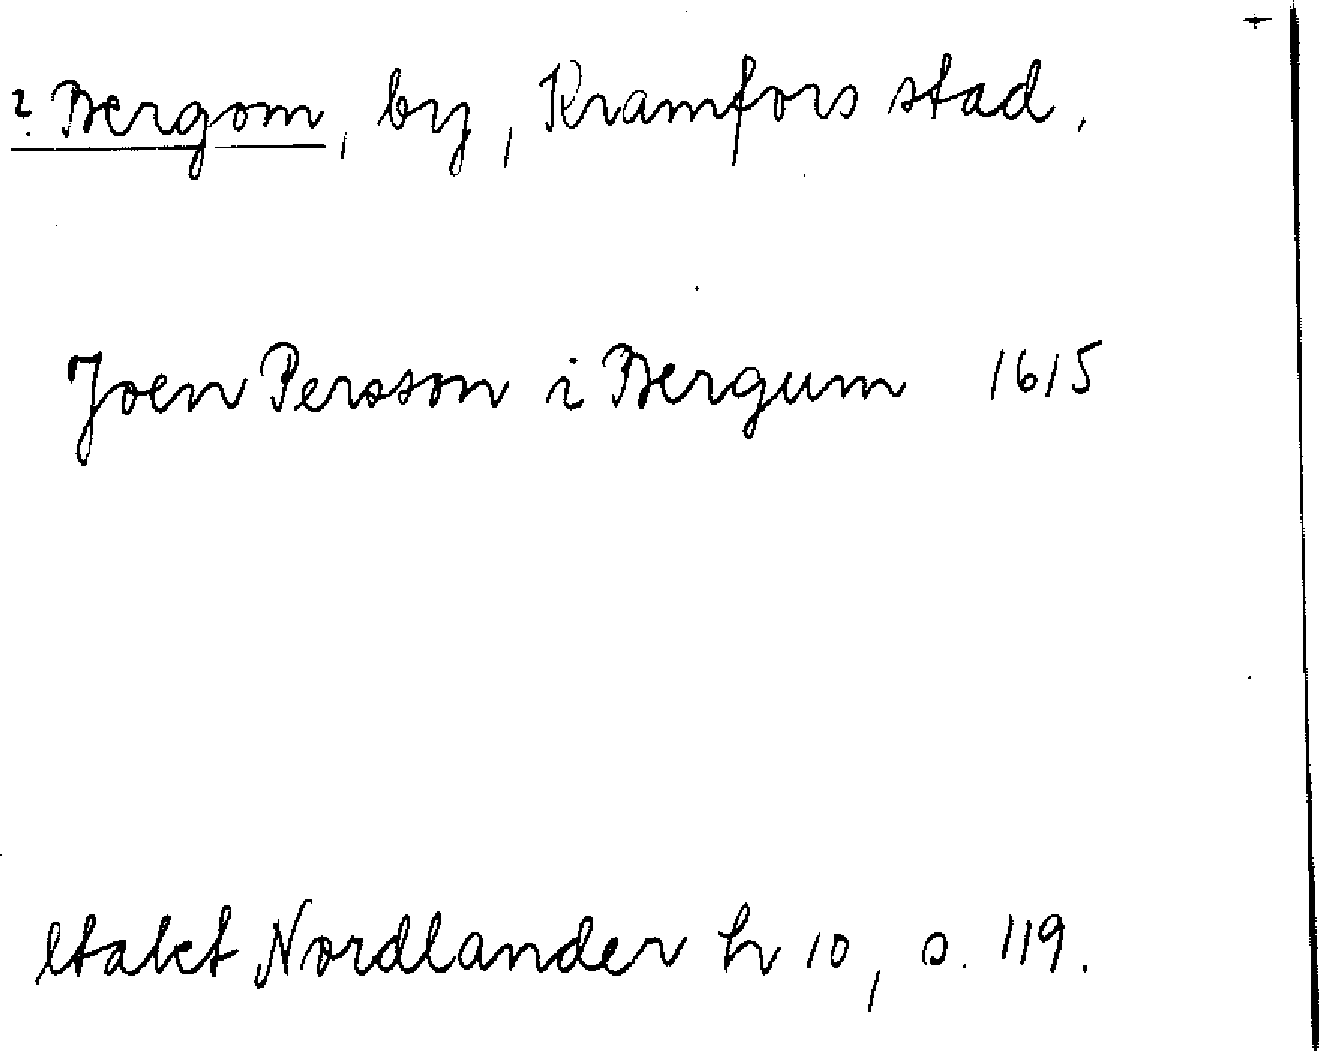 ? Bergom, by, Kramfors stad.
Joen Persson i Bergum 1615
Nordlander h 10, s. 119.